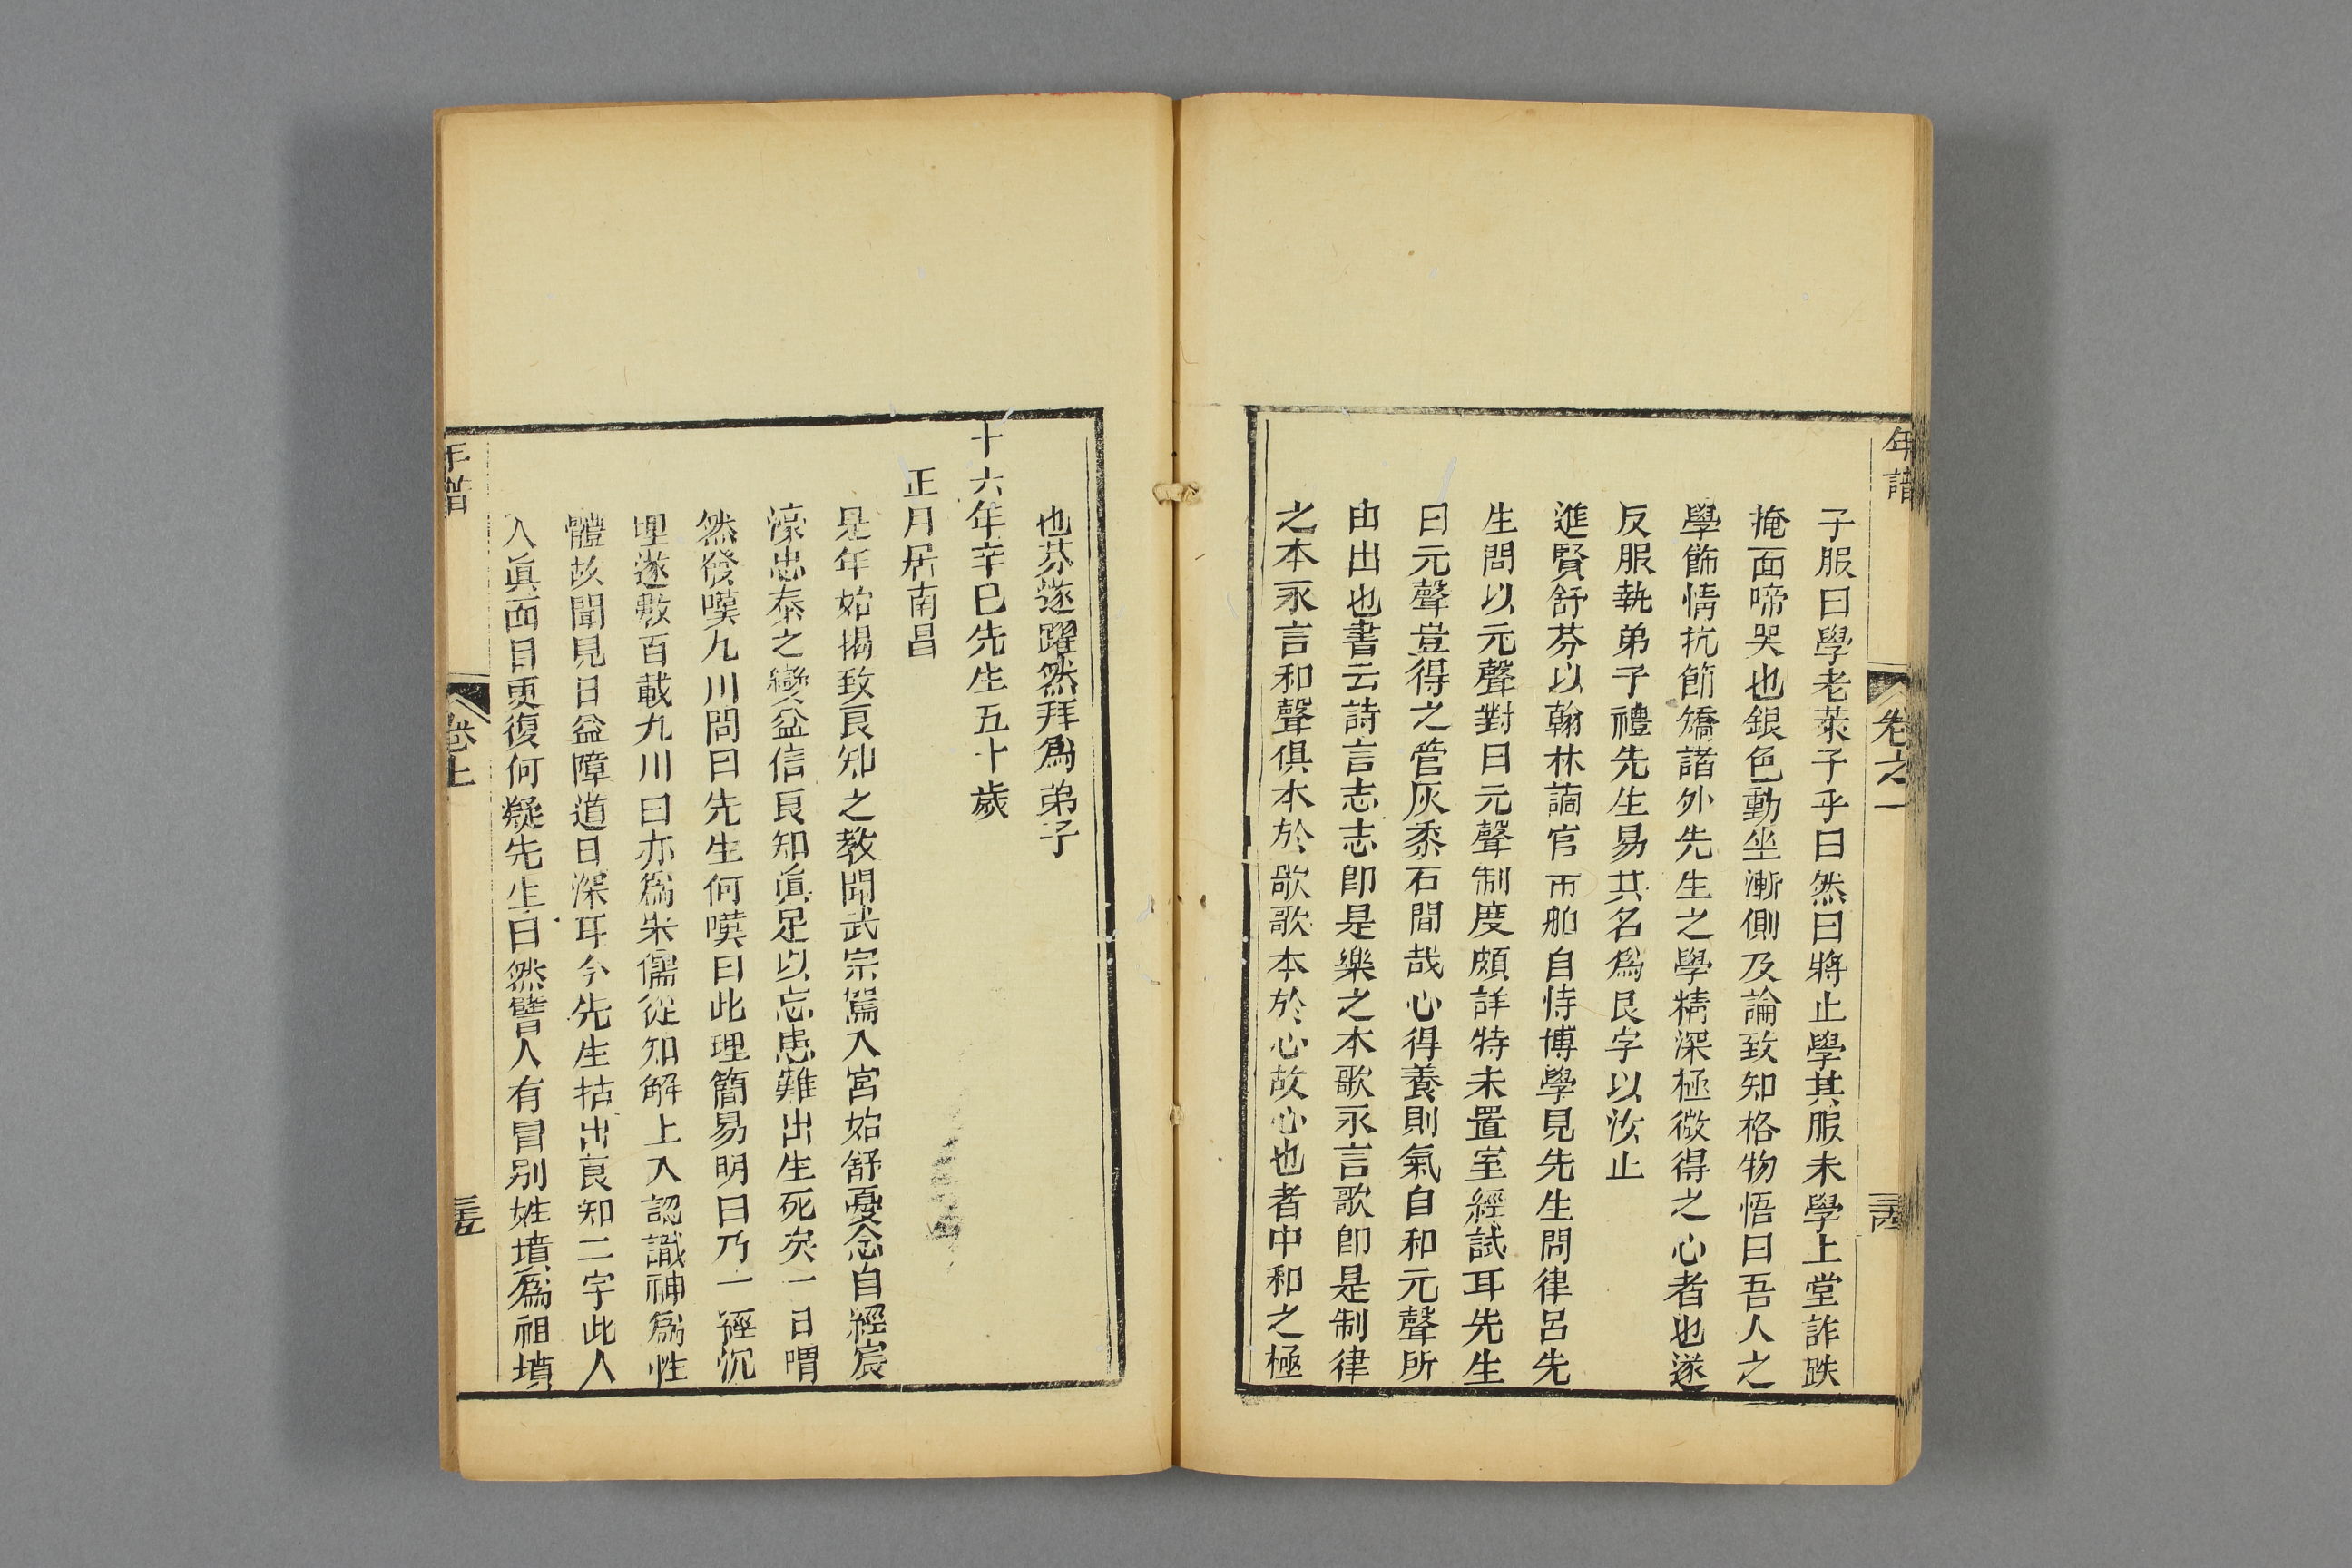 年譜
卷之一
三四
子服曰學老萊子乎曰然曰將止學其服未學上堂詐跌
掩面啼哭也銀色動坐漸側及論致知格物悟曰吾人之
學飾情抗節矯諸外先生之學精深極微得之心者也遂
反服執弟子禮先生易其名爲艮字以汝止
進賢舒芬以翰林謫官市舶自恃博學見先生問律呂先
生問以元聲對曰元聲制度頗詳特未置室經試耳先生
曰元聲豈得之管灰黍石間哉心得養則氣自和元聲所
由出也書云詩言志志卽是樂之本歌永言歌卽是制律
之本永言和聲俱本於歌歌本於心故心也者中和之極
也芬遂躍然拜爲弟子
十六年辛巳先生五十歲
正月居南昌
是年始揭致良知之教聞武宗駕入宮始舒憂念自經宸
濠忠泰之變益信良知眞足以忘患難出生死矣一日喟
然發嘆九川問曰先生何嘆曰此理簡易明白乃一經沉
埋遂數百載九川曰亦爲宋儒從知解上入認識神爲性
體故聞見日益障道日深耳今先生拈出良知二字此人
人眞面目更復何疑先生曰然譬人有冒别姓墳爲祖墳
年譜
卷上
三五